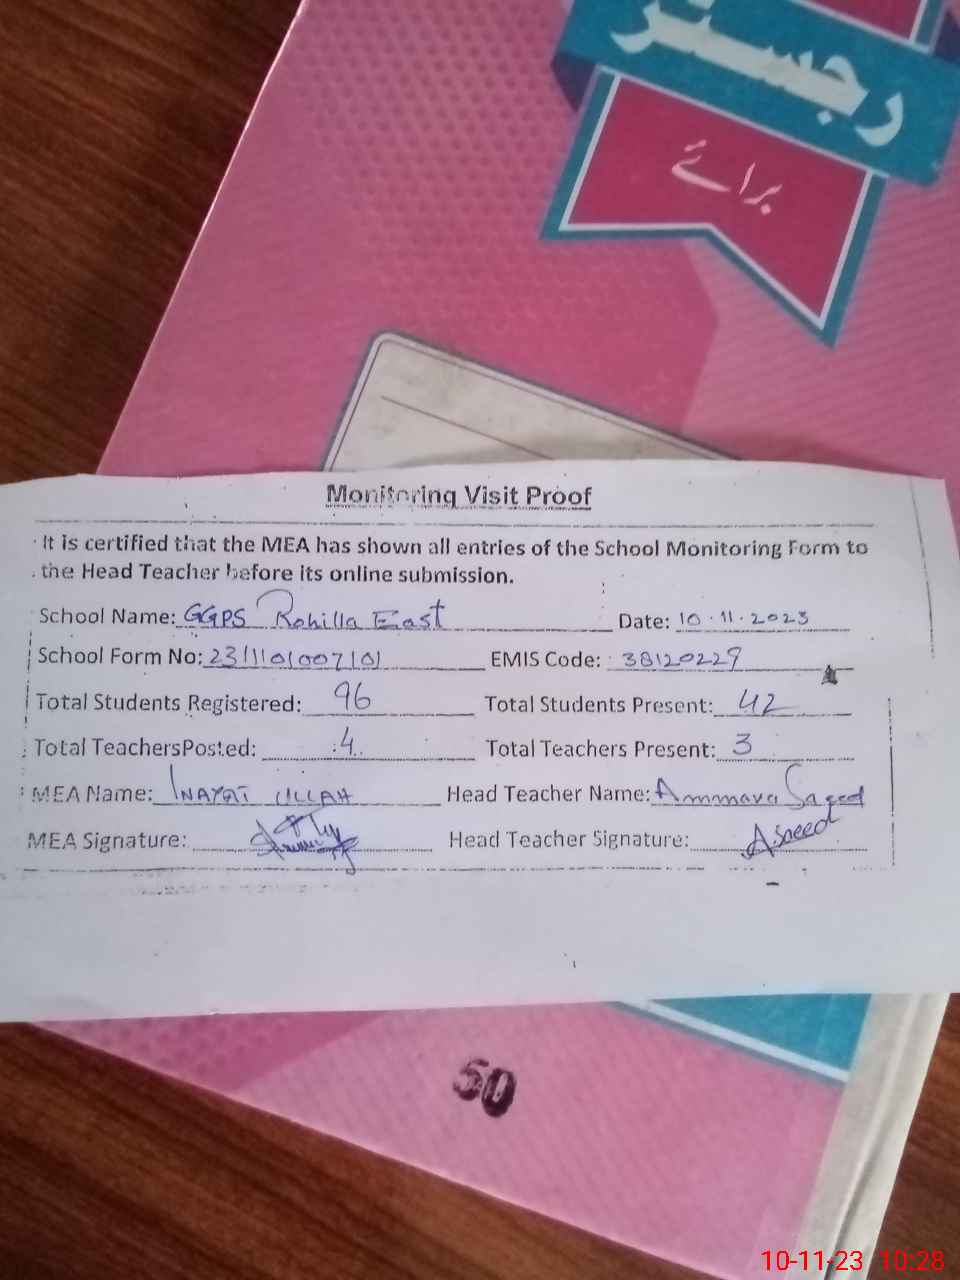 رجسٹر
برائے
Monitoring Visit Proof
It is certified that the MEA has shown all entries of the School Monitoring Form to
the Head Teacher before its online submission.
School Name: GGPS Rohilla East Date: 10.11.2023
School Form No: 2311101007101 EMIS Code: 38120229
Total Students Registered: 96 Total Students Present: 42
Total TeachersPosted: 4 Total Teachers Present: 3
MEA Name: INAYAT ULLAH Head Teacher Name: Ammara Saeed
MEA Signature: Head Teacher Signature: A.Saeed
50
10-11-23 10:28